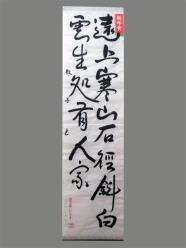 遠上寒山石徑斜白
雲生处有人家